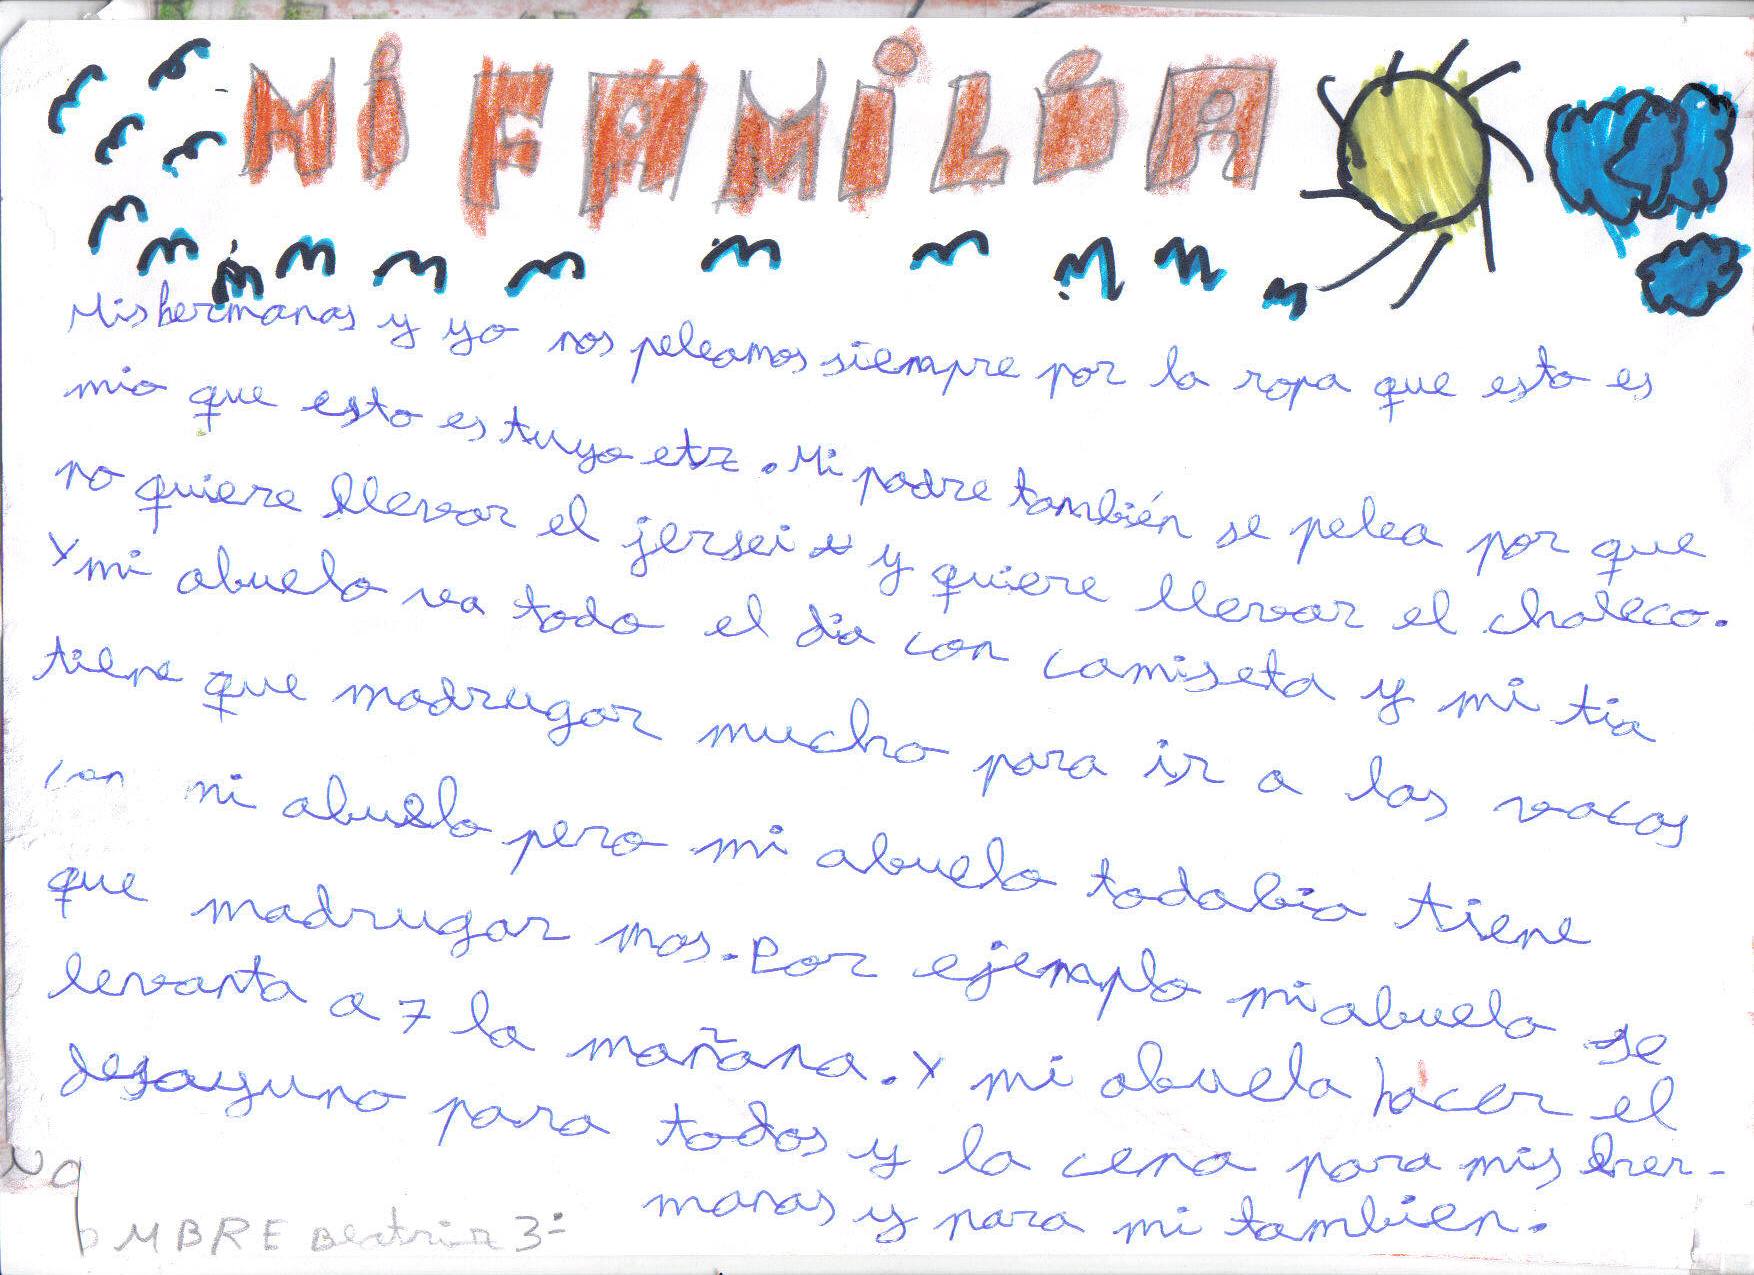 MI FAMILIA
Mis hermanas y yo nos peleamos siempre por la ropa que esto es
mio que esto es tuyo etz. Mi padre también se pelea por que
no quiere llevar el jersei y quiere llevar el chaleco.
Y mi abuelo va todo el dia con camiseta y mi tia
tiene que madrugar mucho para ir a las vacas
con mi abuelo pero mi abuelo todabia tiene
que madrugar mas. Por ejemplo mi abuelo se
levanta a 7 la mañana. Y mi abuela hacer el
desayuno para todos y la cena para mis her-
manas y para mi tambien.
OMBRE Beatriz 3º